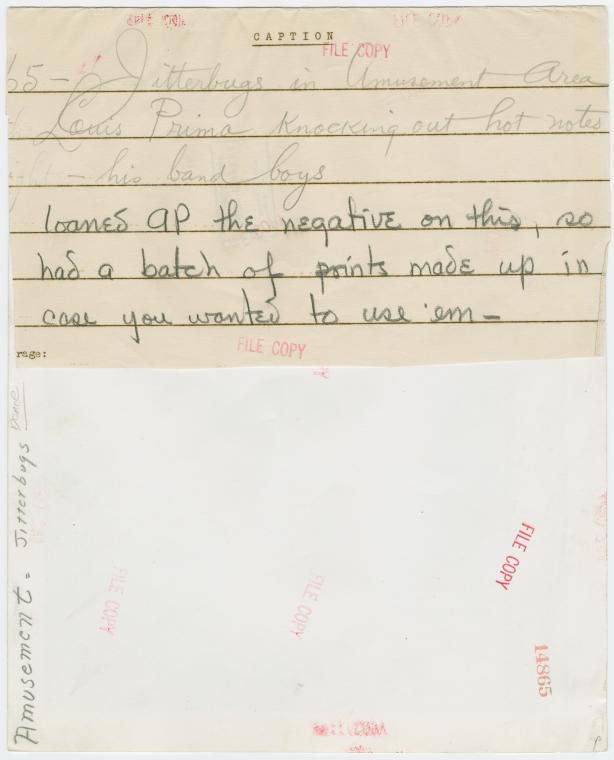 CAPTION
FILE COPY
65 - Jitterbugs in Amusement Area
Louis Prima knocking out hot notes
- his band boys
loaned AP the negative on this, so
had a batch of prints made up in
case you wanted to use 'em -
rage:
FILE COPY
Amusement - Jitterbugs
Dance
FILE COPY
FILE COPY
FILE COPY
14865